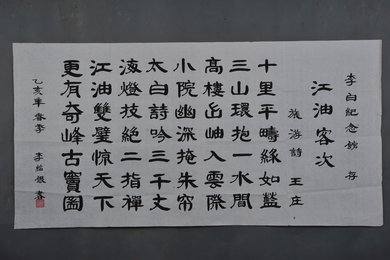 李白纪念馆 存
江油客次
旅游詩 王庄
十里平疇緑如藍
三山環抱一水間
高樓出岫入雲際
小院幽深掩朱帘
太白詩吟三千丈
海燈技絶二指禪
江油雙璧惊天下
更有奇峰古竇圌
乙亥年春李 書